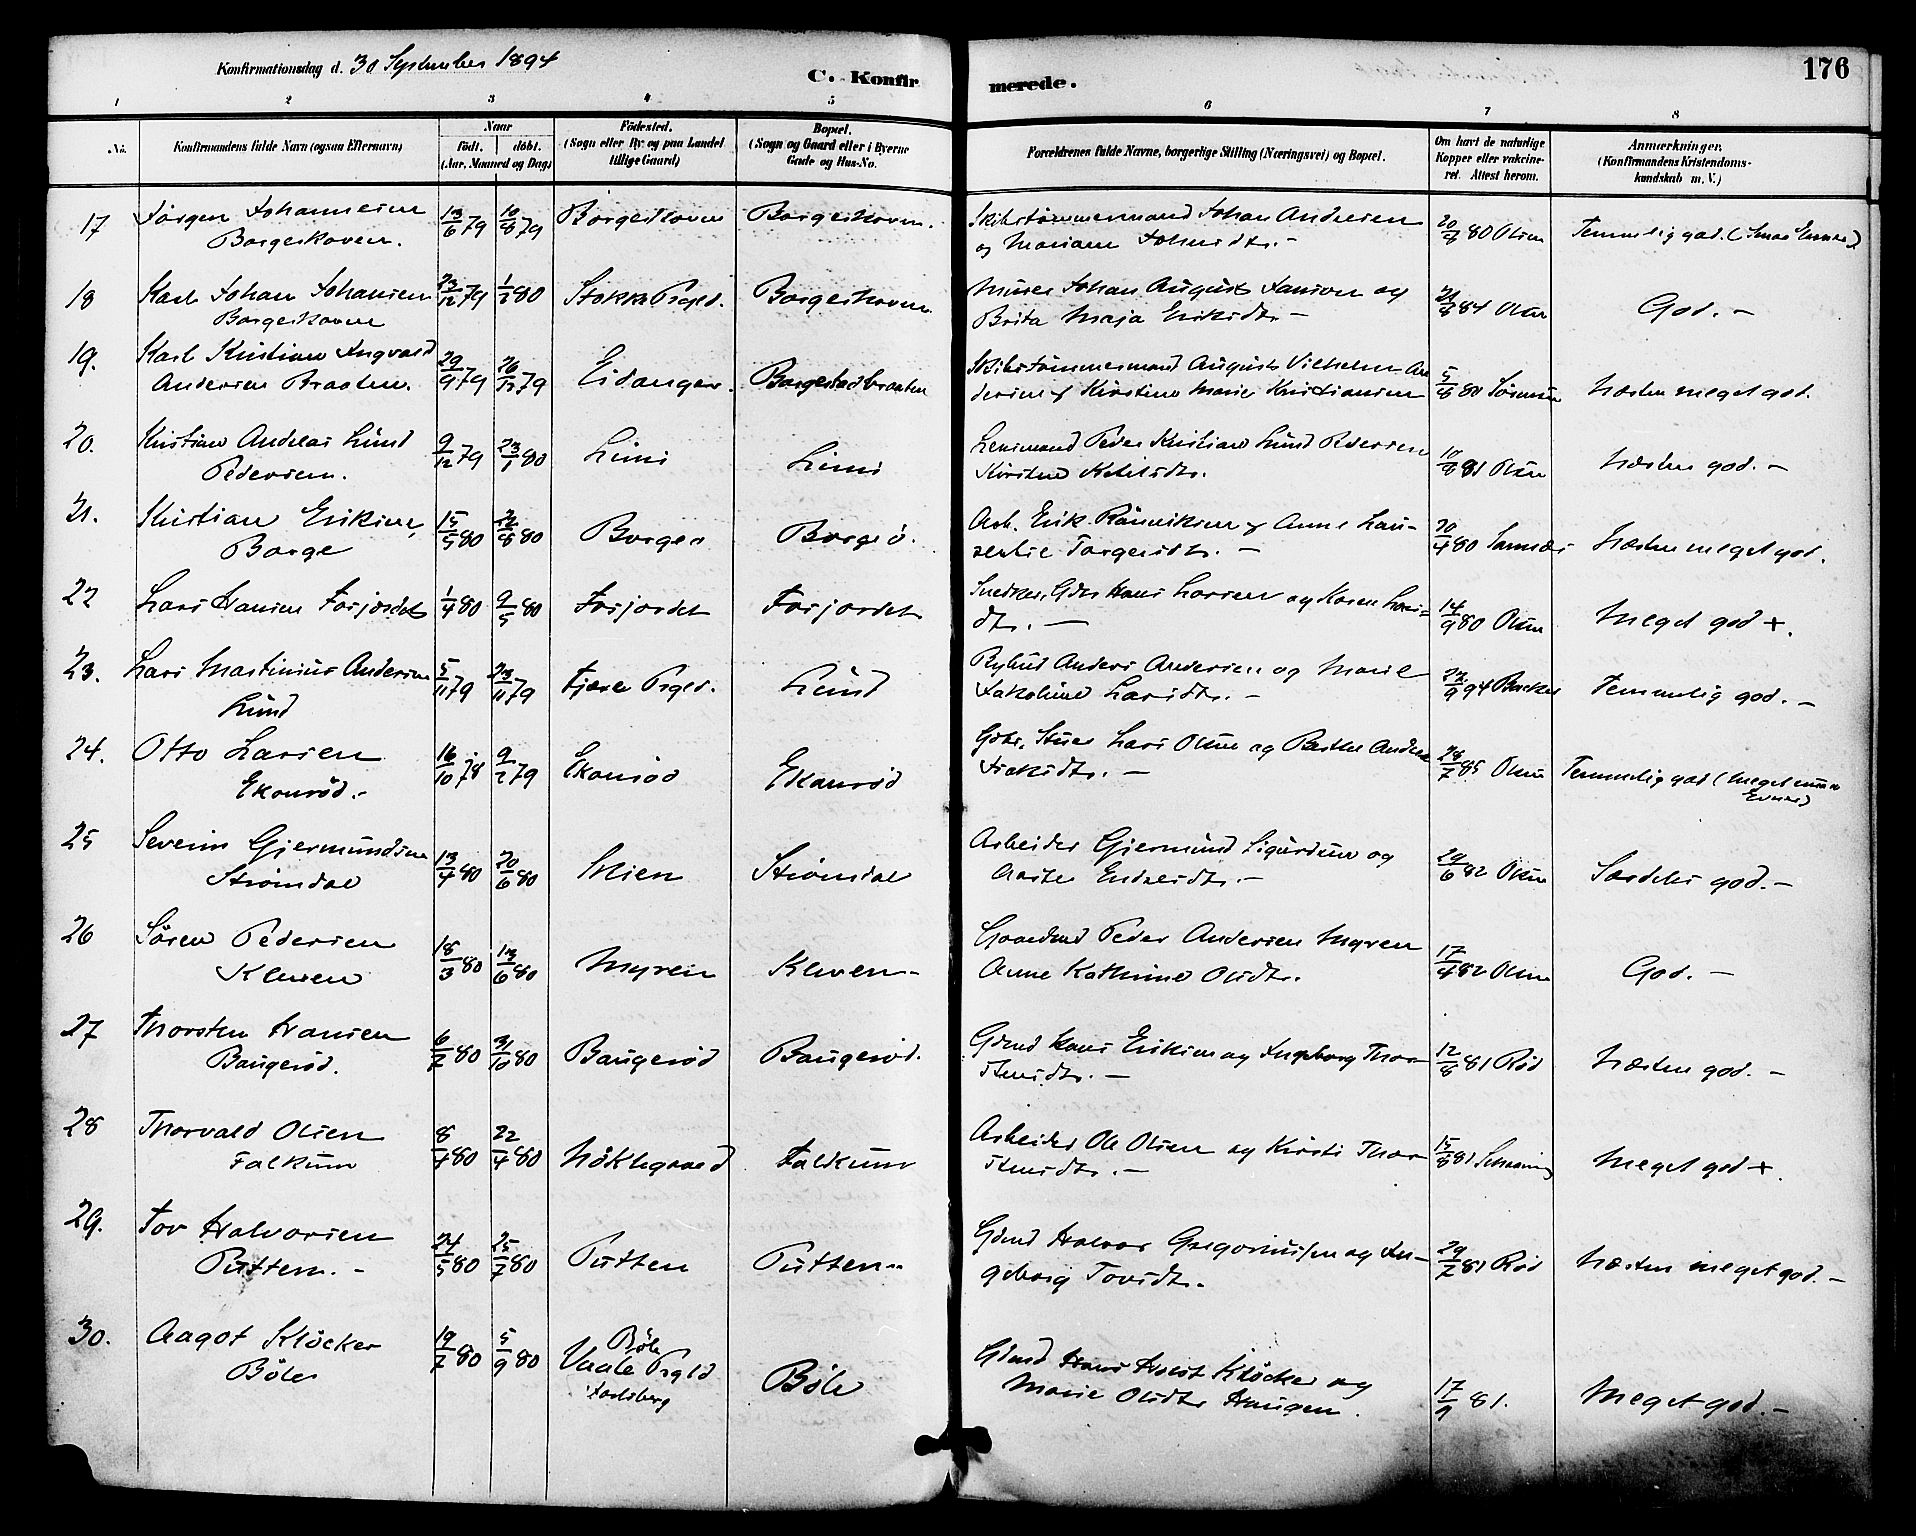 Konfirmationsdag d. 30 September 1894
C. Konfirmerede.
176
1 2 3 4 5 6 7 8
No. Konfirmandens fulde Navn (ogsaa Efternavn) Naar født. døbt. (Aar, Maaned og Dag) Fødested. (Sogn eller By og paa Landet tillige Gaard) Bopæl. (Sogn og Gaard eller i Byerne Gade og Hus-No. Forældrenes fulde Navne, borgerlige Stilling (Næringsvei) og Bopæl. Om havt de naturlige Kopper eller vakcineret. Attest herom. Anmærkninger. (Konfirmandens Kristendomskundskab m. V.)
17 Jørgen Johannesen 13/6 79 10/8 79 Borgeskoven Borgeskoven. Skibstømmermand Johan Andresen 20/7 80 Olsen Temmelig god. (Smaa Evner)
Borgeskoven. og Mariane Johnsdtr. -
18 Karl Johan Johansen 23/12 79 1/2 80 Stokke Prgld. Borgeskoven Murer Johan August Jansson og 21/8 84 Olsen God. -
Borgeskoven Brita Maja Eriksdtr -
19. Karl Kristian Ingvald 29/9 79 26/12 79 Eidanger. Borgestadbraaten Skibstømmermand August Vilhelm An 5/8 80 Sørensen Næsten meget god.
Andersen Braaten. dersen & Kirstine Marie Kristiansen
20. Kristian Andreas Lund 9/12 79 23/1 80 Limi Limi Lensmand Peder Kristian Lund Pedersen 10/8 81 Olsen Næsten god. -
Pedersen. Kirstine Ketilsdtr.
21. Kristian Eriksen, 15/5 80 22/8 80 Borge Borge. Arb. Erik Rasmussen & Anne Lau- 20/4 80 Næsten meget god.
Borge Torgersdtr. -
22 Lars Hansen Fosjordet 1/4 80 9/5 80 Fosjordet Fosjordet Snedker, Gbr Hans Larsen og Karen Lars- 14/9 80 Olsen Meget god +.
dtr. -
23. Lars Martinius Andersen 5/11 79 23/11 79 Fjære Prgld. Lund Andersen og Marie 22/9 94 Backer Temmelig god. -
Lund Jakobine Larsdtr. -
24. Otto Larsen 16/10 78 9/2 79 Ekornrød Ekornrød Lars Olsen og Berthe Andrea 28/7 85 Olsen Temmelig god (meget smaa
Ekornrød. - Isaksdtr. - Evner)
25 Severin Gjermundsen 13/4 80 20/6 80 Skien Strømdal Arbeider Gjermund Sigurdsen og 29/6 82 Olsen Særdeles god. -
Strømdal Aaste Endresdtr. -
26 Søren Pedersen 18/3 80 13/6 80 Myren Kleven - Gaardmd Peder Andersen Myren 17/4 82 Olsen God. -
Kleven Anne Kathrine Olsdtr.
27 Thorsten Hansen 6/7 80 31/10 80 Baugerød Baugerød. Gdmd Hans Eriksen og Ingeborg Thor 12/8 81 Rød Næsten god. -
Baugerød. stensdtr. -
28 Thorvald Olsen 8/4 80 22/4 80 Nøklegaard Falkum Arbeider Ole Olsen og Kirsti Thor 15/8 81 Meget god +.
Falkum stensdtr. -
29. Tov Halvorsen 24/5 80 25/7 80 Putten Putten - Gdmd Halvor Gregoriussen og In- 29/7 81 Rød Næsten meget god. -
Putten. - geborg Tovsdtr.
30. Aagot Kløcker 19/7 80 5/9 80 Bøle Bøle Gdmd Hans Holst Kløcker og 17/9 81. Meget god. -
Bøle Vaale Prgld Marie Olsdtr Haugen.
Jarlsberg